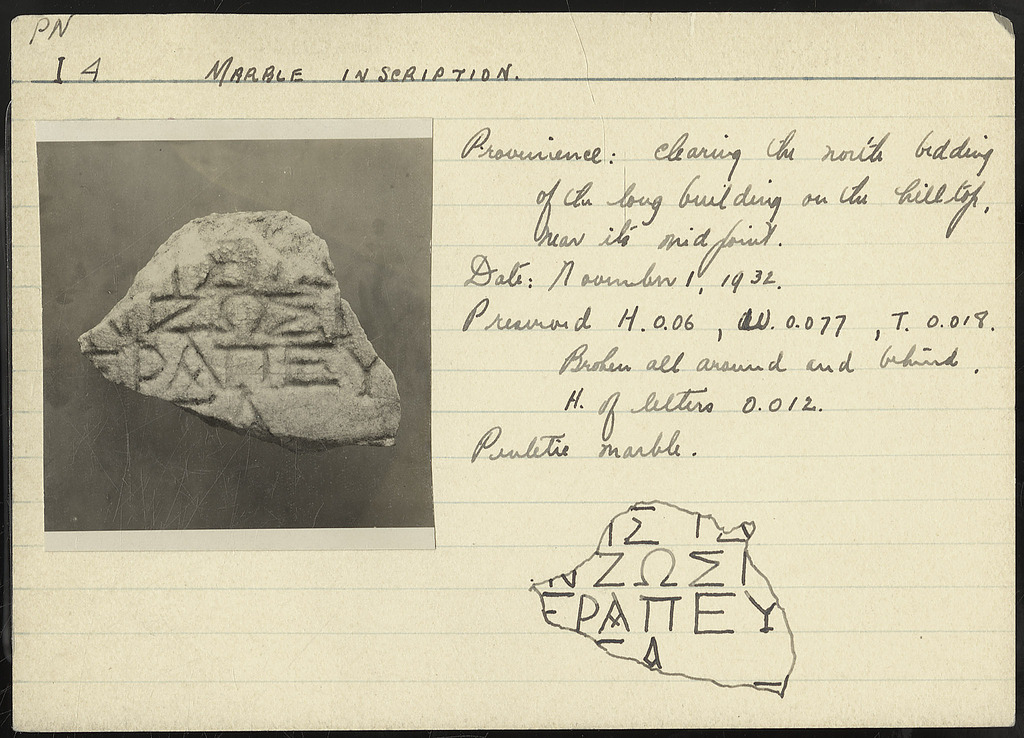 PN
I 4 MARBLE INSCRIPTION.
Provenience: clearing the north bedding
of the long building on the hilltop,
near its mid point.
Date: November 1, 1932.
Preserved H. 0.06, W. 0.077, T. 0.018.
Broken all around and behind.
H. of letters 0.012.
Pentelic marble.
ΖΩΣΙ
ΕΡΑΠΕΥ
ΙΣ Ι
Ν ΖΩΣΙ
ΕΡΑΠΕΥ
Α